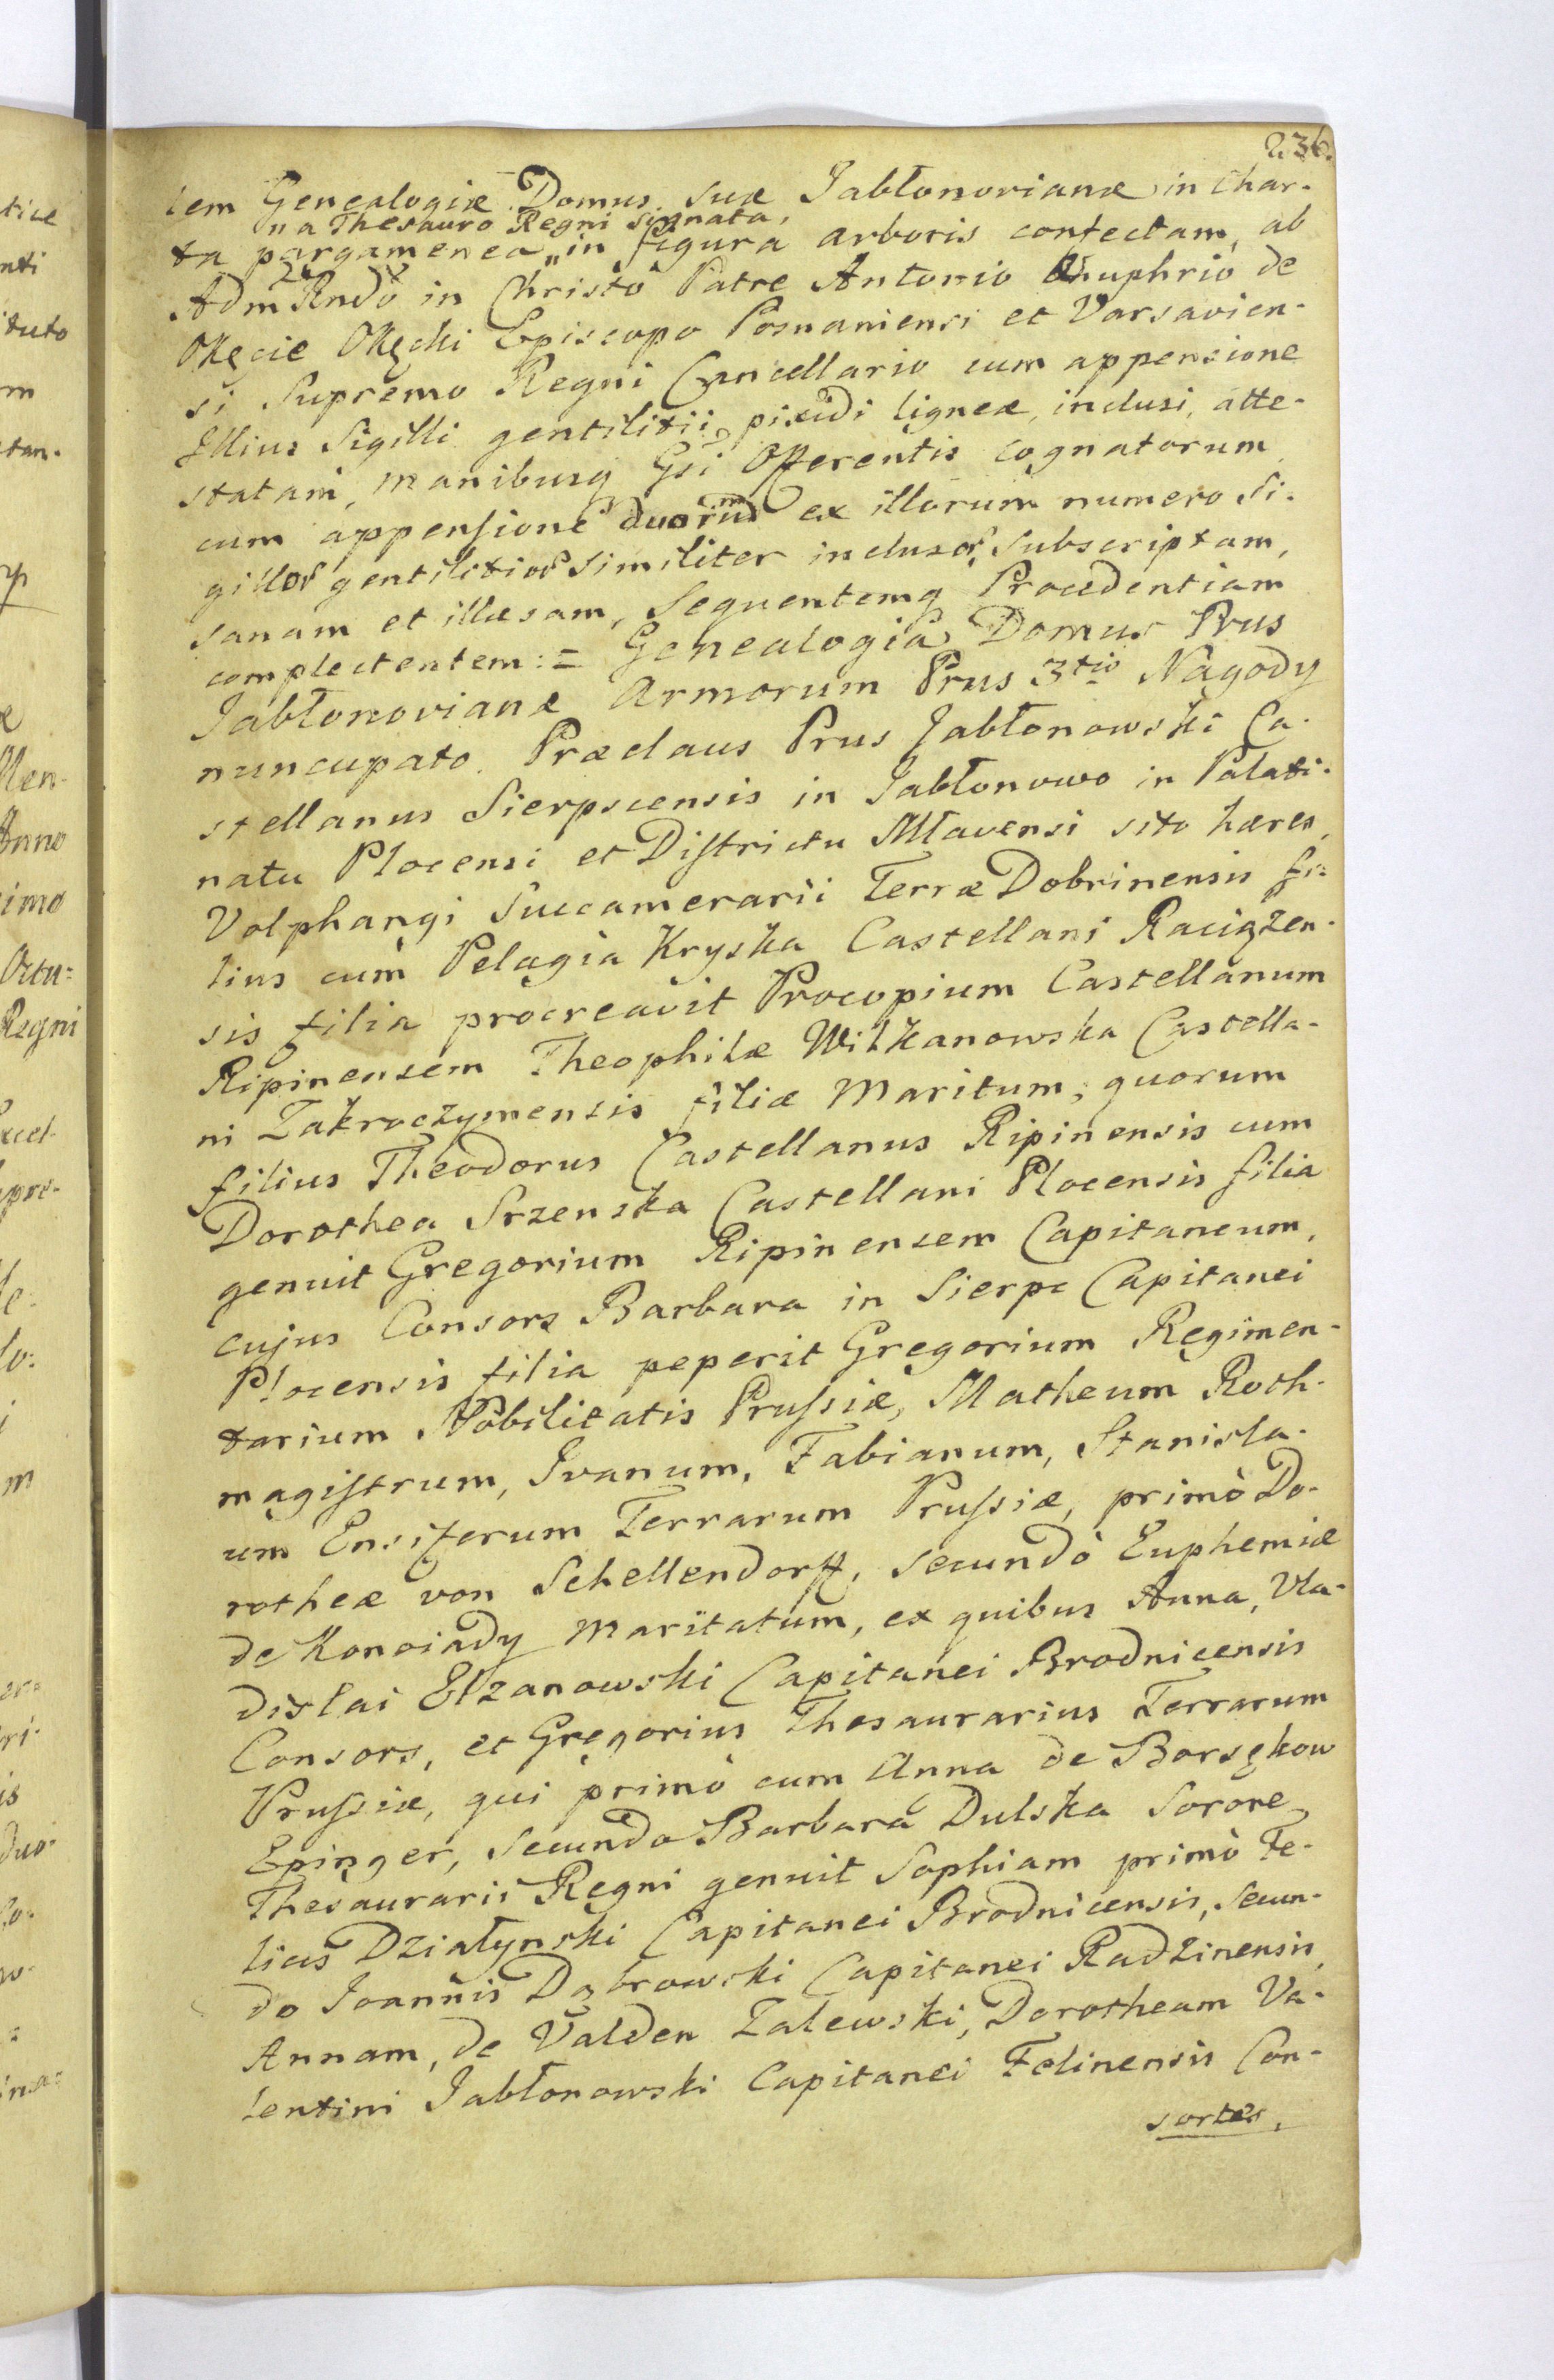 236.
tem Genealogiæ Domus suæ Jabłonovianæ in Char-
na Thesauro Regni signata,
ta pargamenea „ in figura arboris confectam, ab
Adm Rndo in Christo Patre Antonio Onuphrio de
Okęcie Okęcki Episcopo Posnaniensi et Varsavien-
si Supremo Regni Cancellario cum appensione
Illius Sigilli gentilitii pixidi ligneæ, inclusi, atte-
statam, manibusq Gsi Offerentis cognatorum
cum appensione duorum ex illorum numero Si-
gillor gentilitior similiter inclusor subscriptam,
sanam et illæsam, sequentemq Procedentiam
complectentem:= Genealogia Domus Prus
Jabłonovianæ Armorum Prus 3tio Nagody
nuncupato. Præclaus Prus Jabłonowski Ca-
stellanus Sierpscensis in Jabłonowo in Palati-
natu Plocensi et Districtu Mlavensi sito hæres,
Volphangi Succamerarii Terræ Dobrinensis fi-
lius cum Pelagia Kryska Castellani Raciązen-
sis filia procreavit Procopium Castellanum
Ripinensem Theophilæ Wilkanowska Castella-
ni Zakroczymensis filiæ Maritum; quorum
filius Theodorus Castellanus Ripinensis cum
Dorothea Srzenska Castellani Plocensis filia
genuit Gregorium Ripinensem Capitaneum,
cujus Consors Barbara in Sierpc Capitanei
Plocensis filia peperit Gregorium Regimen-
tarium Nobilitatis Prussiæ, Matheum Roth-
magistrum, Ivanum, Fabianum, Stanisla-
um Ensiferum Terrarum Prussiæ, primò Do-
rotheæ von Schellendorff, secundò Euphemiæ
de Konoiady Maritatum, ex quibus Anna, Vla-
dislai Elzanowski Capitanei Brodnicensis
Consors, et Gregorius Thesaurarius Terrarum
Prussiæ, qui primò cum Anna de Borsękow
Epinger, secundo Barbara Dulska Sorore
Thesaurarii Regni genuit Sophiam primò Fe-
licis Działynski Capitanei Brodnicensis, Secun-
do Joannis Dąbrowski Capitanei Radzinensis,
Annam, de Valden Zalewski, Dorotheam Va-
lentini Jabłonowski Capitanei Felinensis Con-
sortes,